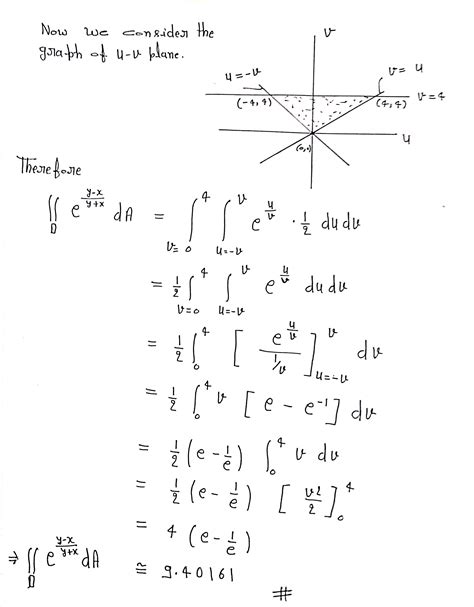 Now we consider the
graph of u-v plane.
v
u=-v
v= u
(-4,4)
(4,4)
v=4
(0,0)
u
Therefore
∬_D e^{\frac{y-x}{y+x}} dA = ∫_{v=0}^{4} ∫_{u=-v}^{v} e^{\frac{u}{v}} · \frac{1}{2} du dv
= \frac{1}{2} ∫_{v=0}^{4} ∫_{u=-v}^{v} e^{\frac{u}{v}} du dv
= \frac{1}{2} ∫_{0}^{4} [ \frac{e^{\frac{u}{v}}}{1/v} ]_{u=-v}^{v} dv
= \frac{1}{2} ∫_{0}^{4} v [ e - e^{-1} ] dv
= \frac{1}{2} (e - \frac{1}{e}) ∫_{0}^{4} v dv
= \frac{1}{2} (e - \frac{1}{e}) [ \frac{v^2}{2} ]_{0}^{4}
= 4 (e - \frac{1}{e})
⇒ ∬_D e^{\frac{y-x}{y+x}} dA ≅ 9.40161
#